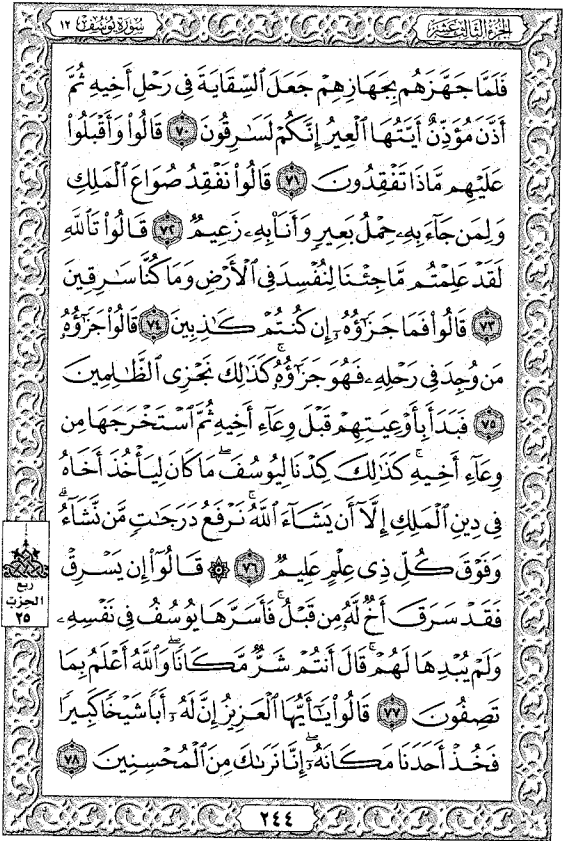 الجزء الثالث عشر
سورة يوسف ١٢
فَلَمَّا جَهَّزَهُم بِجَهَازِهِمْ جَعَلَ ٱلسِّقَايَةَ فِى رَحْلِ أَخِيهِ ثُمَّ
أَذَّنَ مُؤَذِّنٌ أَيَّتُهَا ٱلْعِيرُ إِنَّكُمْ لَسَٰرِقُونَ ٧٠ قَالُوا۟ وَأَقْبَلُوا۟
عَلَيْهِم مَّاذَا تَفْقِدُونَ ٧١ قَالُوا۟ نَفْقِدُ صُوَاعَ ٱلْمَلِكِ
وَلِمَن جَآءَ بِهِۦ حِمْلُ بَعِيرٍ وَأَنَا۠ بِهِۦ زَعِيمٌ ٧٢ قَالُوا۟ تَٱللَّهِ
لَقَدْ عَلِمْتُم مَّا جِئْنَا لِنُفْسِدَ فِى ٱلْأَرْضِ وَمَا كُنَّا سَٰرِقِينَ
٧٣ قَالُوا۟ فَمَا جَزَٰٓؤُهُۥٓ إِن كُنتُمْ كَٰذِبِينَ ٧٤ قَالُوا۟ جَزَٰٓؤُهُۥ
مَن وُجِدَ فِى رَحْلِهِۦ فَهُوَ جَزَٰٓؤُهُۥ ۚ كَذَٰلِكَ نَجْزِى ٱلظَّٰلِمِينَ
٧٥ فَبَدَأَ بِأَوْعِيَتِهِمْ قَبْلَ وِعَآءِ أَخِيهِ ثُمَّ ٱسْتَخْرَجَهَا مِن
وِعَآءِ أَخِيهِ ۚ كَذَٰلِكَ كِدْنَا لِيُوسُفَ ۖ مَا كَانَ لِيَأْخُذَ أَخَاهُ
فِى دِينِ ٱلْمَلِكِ إِلَّآ أَن يَشَآءَ ٱللَّهُ ۚ نَرْفَعُ دَرَجَٰتٍ مَّن نَّشَآءُ ۗ
وَفَوْقَ كُلِّ ذِى عِلْمٍ عَلِيمٌ ٧٦ ۞ قَالُوٓا۟ إِن يَسْرِقْ
فَقَدْ سَرَقَ أَخٌ لَّهُۥ مِن قَبْلُ ۚ فَأَسَرَّهَا يُوسُفُ فِى نَفْسِهِۦ
وَلَمْ يُبْدِهَا لَهُمْ ۚ قَالَ أَنتُمْ شَرٌّ مَّكَانًا ۖ وَٱللَّهُ أَعْلَمُ بِمَا
تَصِفُونَ ٧٧ قَالُوا۟ يَٰٓأَيُّهَا ٱلْعَزِيزُ إِنَّ لَهُۥٓ أَبًا شَيْخًا كَبِيرًا
فَخُذْ أَحَدَنَا مَكَانَهُۥٓ ۖ إِنَّا نَرَىٰكَ مِنَ ٱلْمُحْسِنِينَ ٧٨
ربع
الحزب
٢٥
٢٤٤